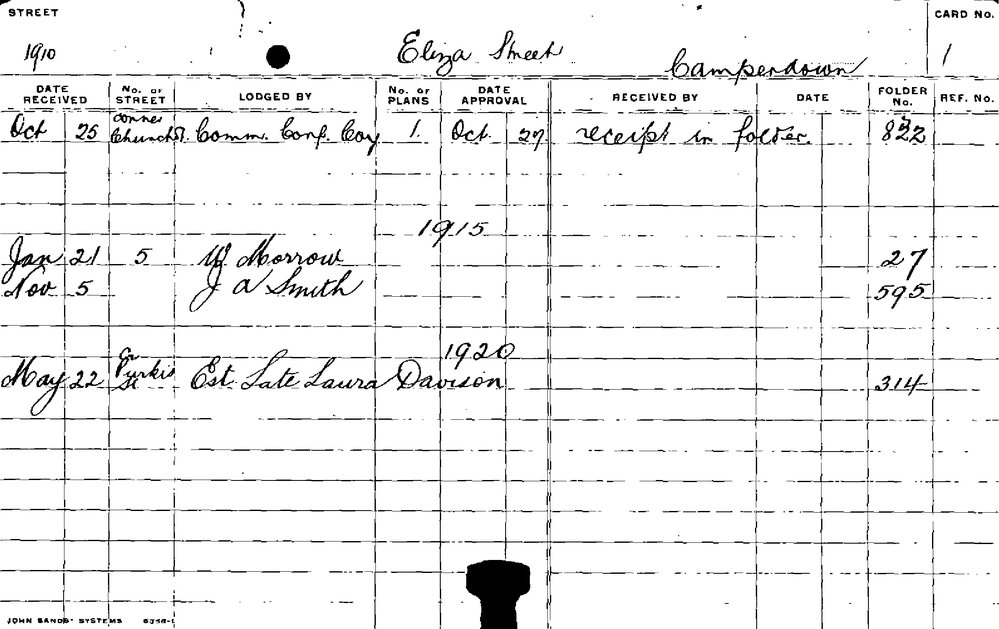 STREET
CARD No.
1910
Eliza Street
Camperdown
1
DATE RECEIVED
No. OF STREET
LODGED BY
No. OF PLANS
DATE APPROVAL
RECEIVED BY
DATE
FOLDER No.
REF. No.
Oct 25 Corner Church St. Comm. Conf. Coy 1. Oct. 27 receipt in folder. 822
1915
Jan 21 5 W Morrow 27
Nov 5 J A Smith 595
1920
May 22 Cr Purkis St Est. Late Laura Davison 314
JOHN SANDS' SYSTEMS